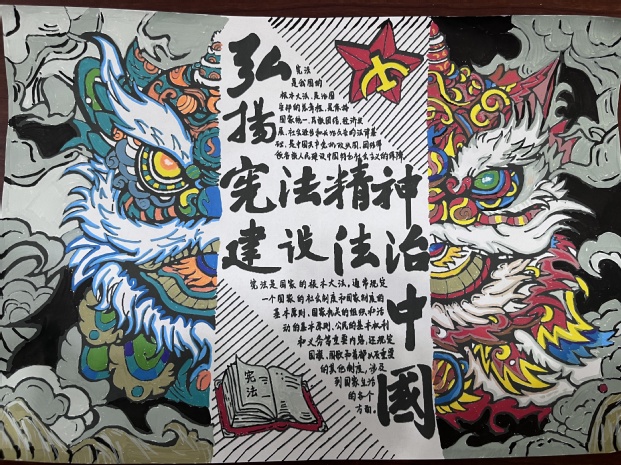 弘揚
宪法精神
建设法治中國
宪法
是我国的
根本大法，是治国
安邦的总章程，是保持
国家统一、民族团结、经济发
展、社会进步和长治久安的法律基
础，是中国共产党执政兴国、团结带
领各族人民建设中国特色社会主义的
宪法是国家的根本大法，通常规定
一个国家的社会制度和国家制度的
基本原则、国家机关的组织和活
动的基本原则，公民的基本权利
和义务等重要内容，还规定
国旗、国歌和首都以及重要
的其他制度，涉及
到国家生活
的各个
方面。
宪法